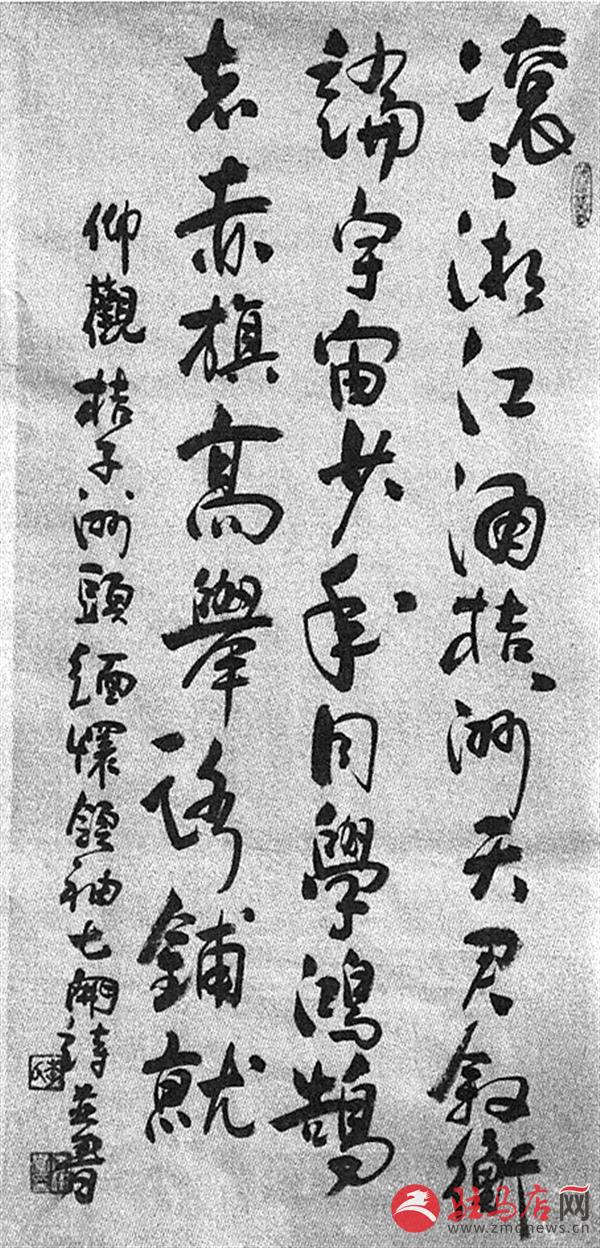 滚〻湘江涌桔洲天君叙衡
論宇宙少年同學鴻鵠
志赤旗高舉路鋪就
仰觀桔子洲頭緬懷領袖七開詩
驻马店网
www.zmdnews.cn